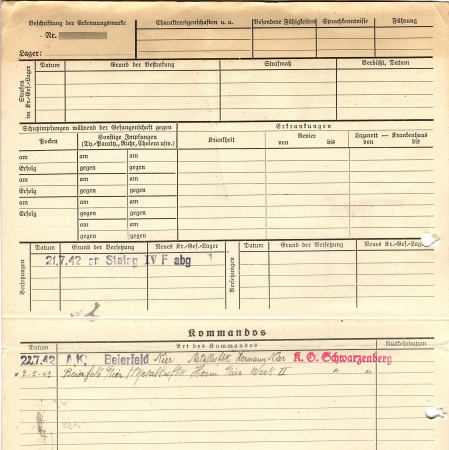 Beschriftung der Erkennungsmarke
Nr.
Lager:
Charaktereigenschaften u. a.
Besondere Fähigkeiten
Sprachkenntnisse
Führung
Strafen im Kr.-Gef.-Lager
Datum
Grund der Bestrafung
Strafmaß
Verbüßt, Datum
Schutzimpfungen während der Gefangenschaft gegen
Erkrankungen
Pocken
Sonstige Impfungen
(Ty.-Paraty., Ruhr, Cholera usw.)
Krankheit
Revier
von bis
Lazarett — Krankenhaus
von bis
am am am
Erfolg gegen gegen
am am am
Erfolg gegen gegen
am am am
Erfolg gegen gegen
am am
gegen gegen
Versetzungen
Datum
Grund der Versetzung
Neues Kr.-Gef.-Lager
Versetzungen
Datum
Grund der Versetzung
Neues Kr.-Gef.-Lager
21.7.42 an Stalag IV F abg
Kommandos
Datum
Art des Kommandos
Rückkehrdatum
22.7.42 AK Beierfeld Hermann K.O. Schwarzenberg
Beierfeld Werk II " "